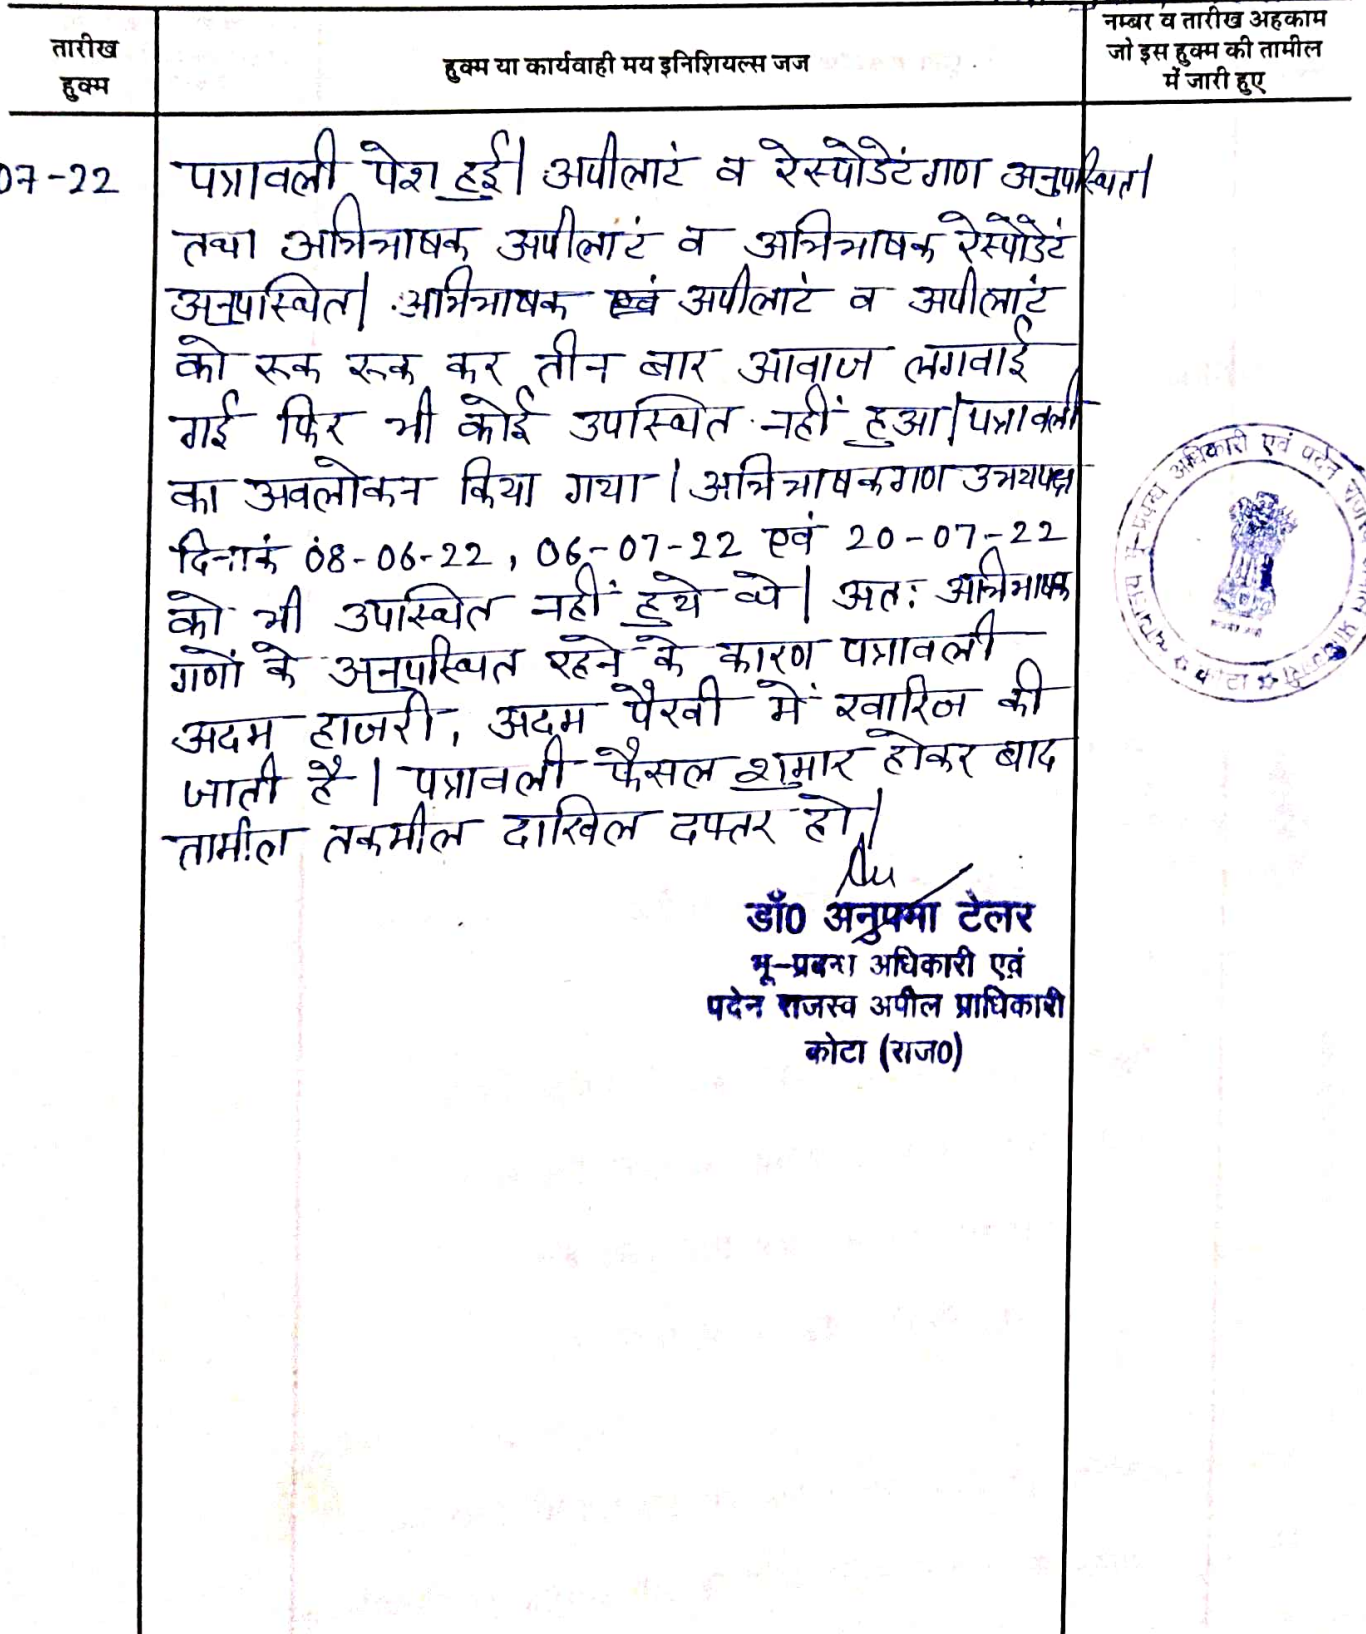 तारीख
हुक्म
हुक्म या कार्यवाही मय इनिशियल्स जज
नम्बर व तारीख अहकाम
जो इस हुक्म की तामील
में जारी हुए
07-22
पत्रावली पेश हुई। अपीलांट व रेस्पोडेंटगण अनुपस्थित।
तथा अभिभाषक अपीलांट व अभिभाषक रेस्पोंडेंट
अनुपस्थित। अभिभाषक अपीलांट व अपीलांट
को रूक रूक कर तीन बार आवाज लगवाई
गई फिर भी कोई उपस्थित नहीं हुआ। पत्रावली
का अवलोकन किया गया। अभिभाषकगण उभयपक्ष
दिनांक 08-06-22, 06-07-22 एवं 20-07-22
को भी उपस्थित नहीं हुये थे। अत: अभिभाषक
गणों के अनुपस्थित रहने के कारण पत्रावली
अदम हाजरी, अदम पैरवी में खारिज की
जाती है। पत्रावली फैसल शुमार होकर बाद
तामील तकमील दाखिल दफ्तर हो।
डॉ0 अनुपमा टेलर
भू-प्रबन्ध अधिकारी एवं
पदेन राजस्व अपील प्राधिकारी
कोटा (राज0)
अधिकारी एवं पदेन
कोटा